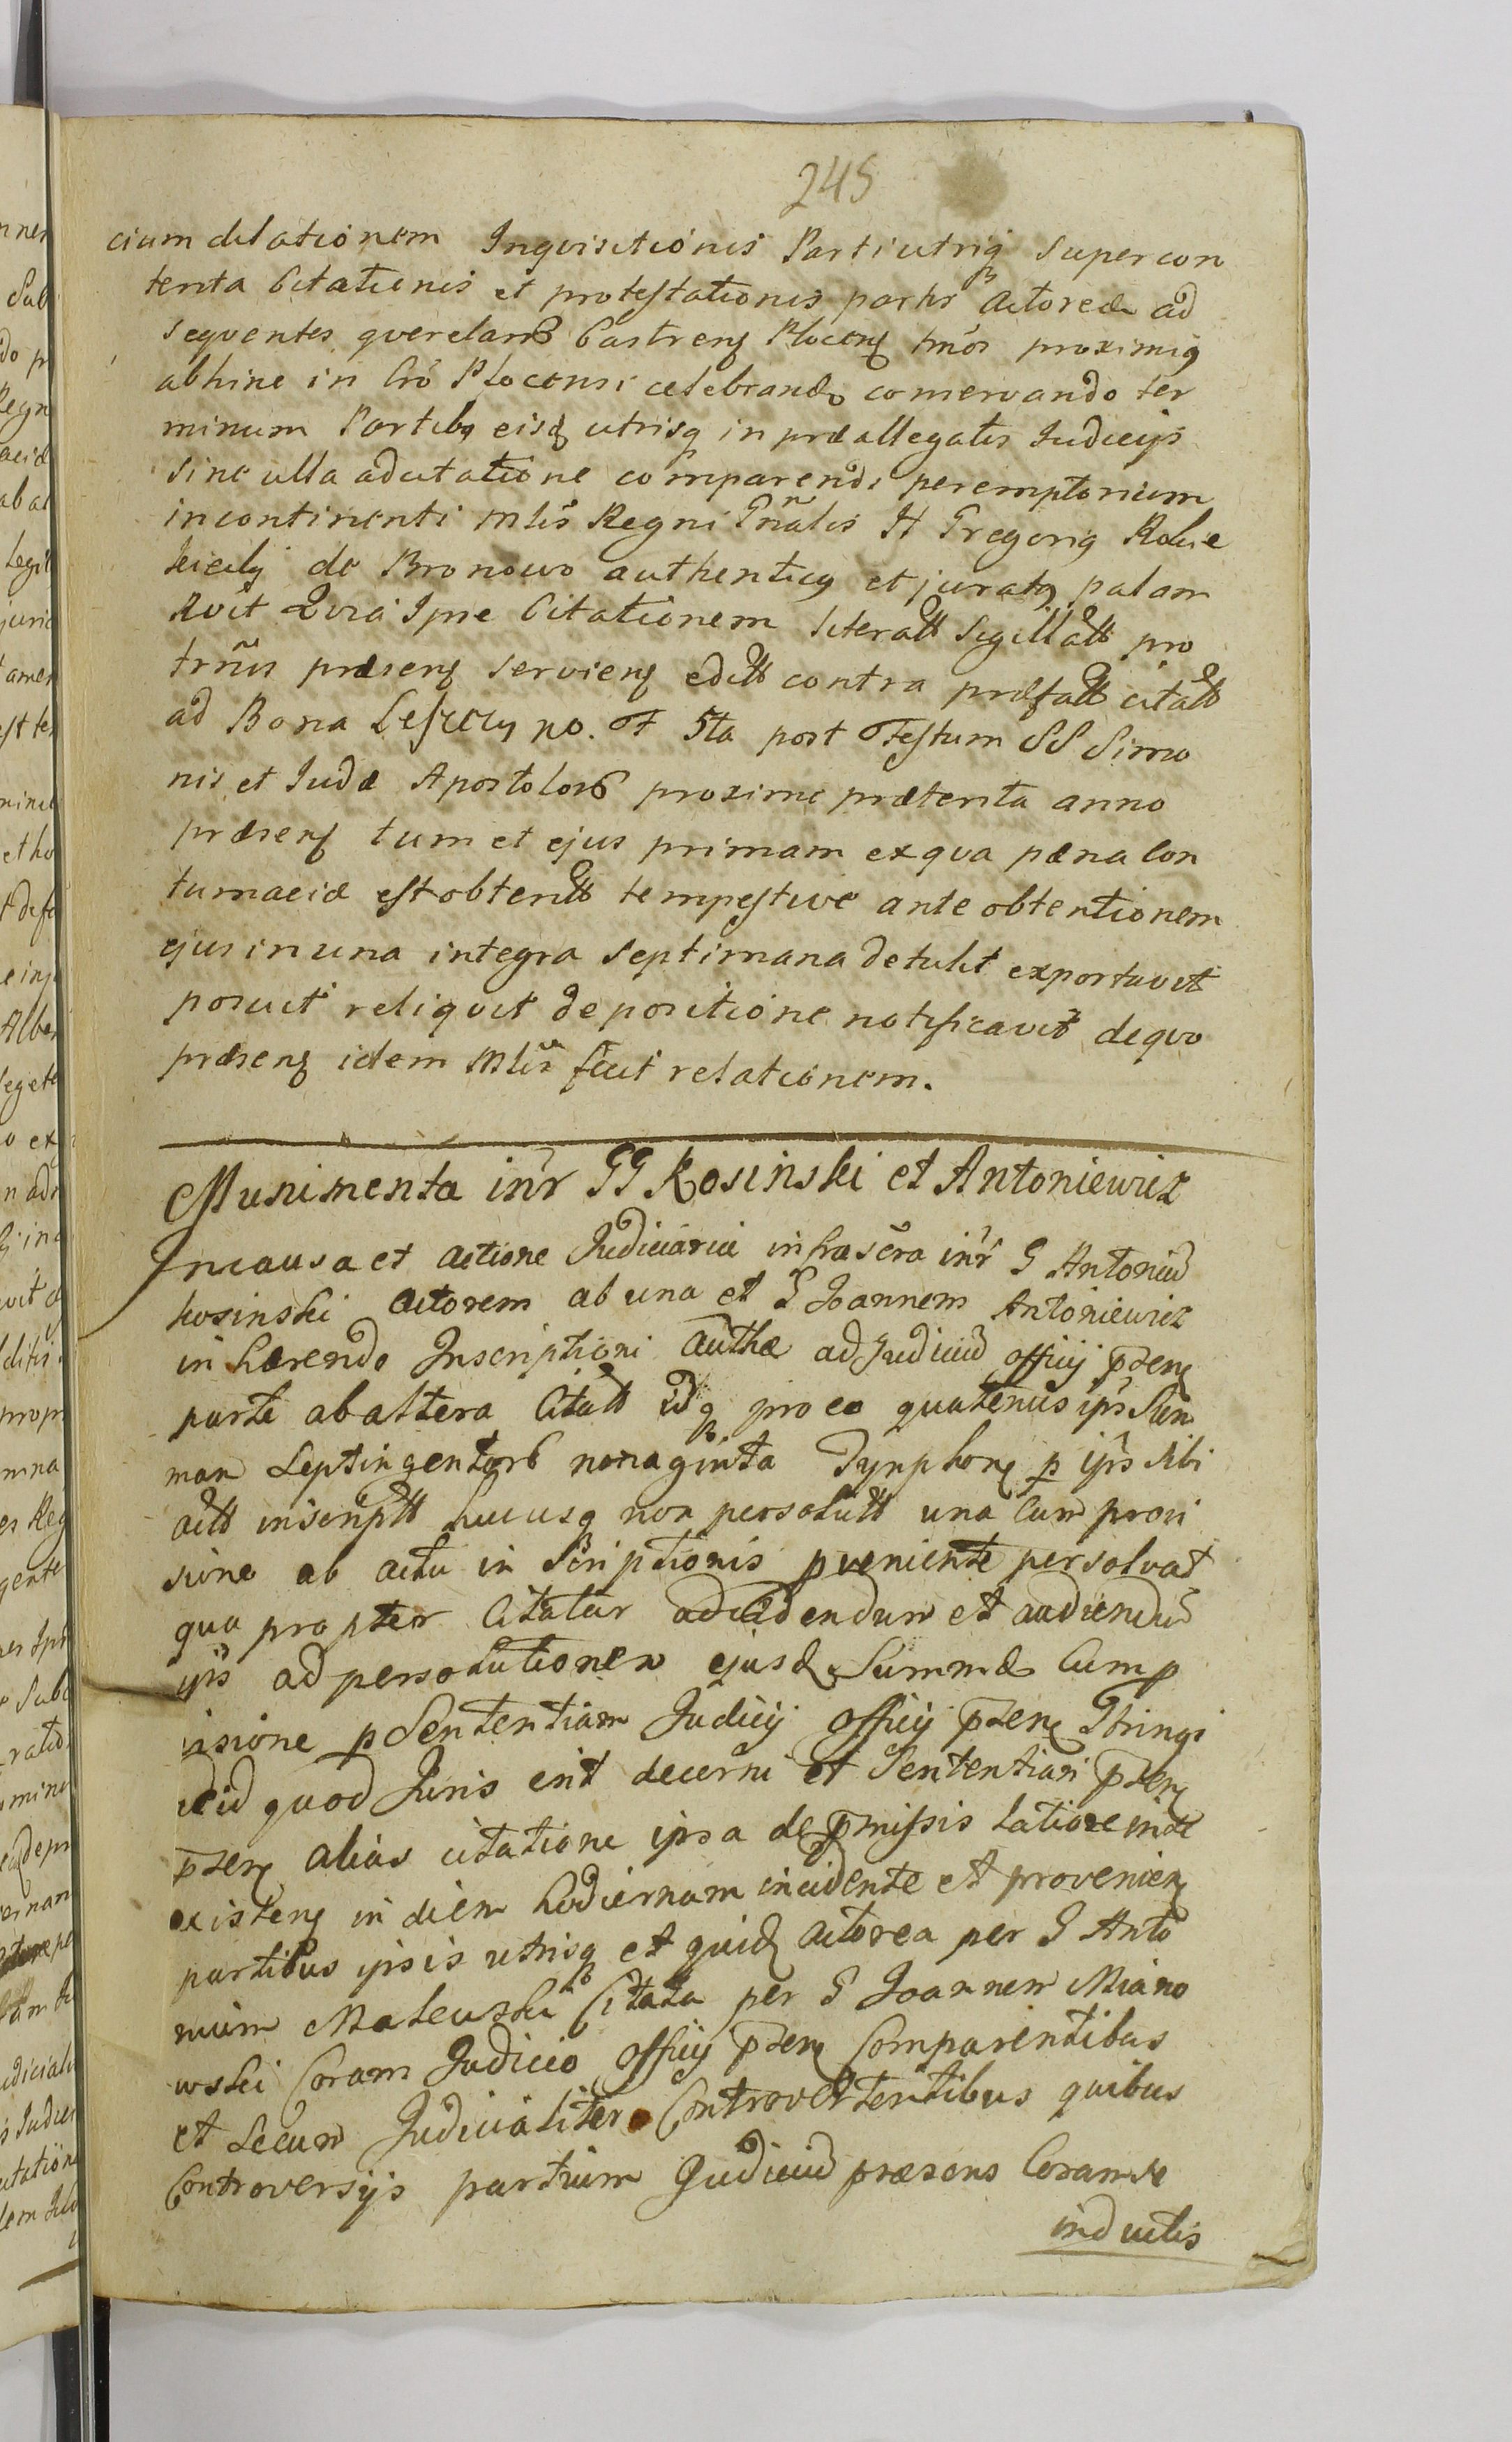 245
cium dilationem Inqvisitionis Parti utriq supercon
tenta Citationis et protestationis partis Actoreæ ad
seqventes qverelarũ Castrens Plocens tmós proximiq
abhinc in Cró Plocensi celebrand conservando ter
minum Partibq eisq utrisq in præallegatis Judicijs
sine ulla adcitatione comparendi peremptorium
incontinenti Mlis Regni Gñalis H Gregoriq
de Bronowo authenticq et juratq palam
Rvit Qvia Ipse Citationem literatt Sigillatt pro
trmis præsens serviens editt contra præfatt citatt
ad Bona no. F 5ta post Festum SS Simo
nis et Judæ Apostolorũ proxime præterita anno
præsens tum et ejus primam exqva pæna Con
tumaciæ est obtentt tempestive ante obtentionem
ejus in una integra Septimana detulit exportavit
posuit reliqvit de positione notificavit deqvo
præsens idem Mlis fecit relationem.
Munimenta intr GG Kosinski et Antoniewicz
In causa et actione Judiciaria infrascra intr G Antoniũ
Kosinski Actorem ab una et G Joannem Antoniewicz
in hærendo Inscriptioni Authæ ad Judiciũ officij pzens
parte ab altera Citatt Idq pro eo quatenus ips Sum
mam Septingentorũ nonaginta Tynphons p ips sibi
actt inscriptt hucusq non persolutt una cum provi
sione ab actu in Scriptionis pveniente persolvat
qua propter Citatur ad videndum et audiendũ
ips ad persolutionem ejusd Summæ Cum p
visione p Sententiam Judicij officij pzens Stringi
ac id quod Juris erit decerni et Sententiari pzens
pzens alias citatione ipsa de pmissis latiore inde
existens in diem hodiernam incidente et proveniens
partibus ipsis utrisq et quid Actorea per G Anto
nium Maleuski Citata per G Joannem Miano
wski Coram Judicio officij pzens Comparentibus
et Secum Judicialiter Controvertentibus quibus
Controversijs partium Judiciũ præsens Coram se
inductis